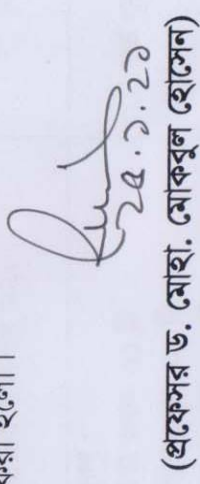 করা হলো।
২৫.১.২১
(প্রফেসর ড. মোহা. মোকবুল হোসেন)